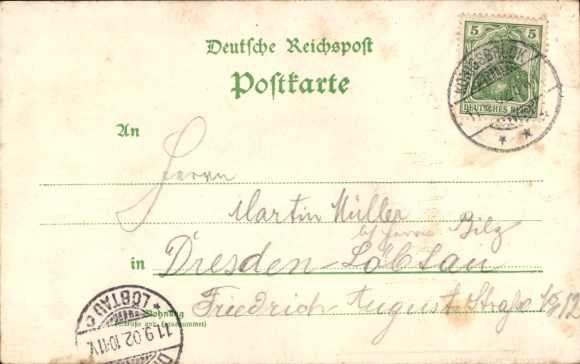 5 5
DEUTSCHES REICH
KÖNIGSBRÜCK
Deutsche Reichspost
Postkarte
An
Herrn
Martin Müller
bei Herrn Bilz
in Dresden-Löbtau
Friedrich-August Straße 12
Wohnung
(Straße und Hausnummer)
LÖBTAU c
11.9.02.10-11V.